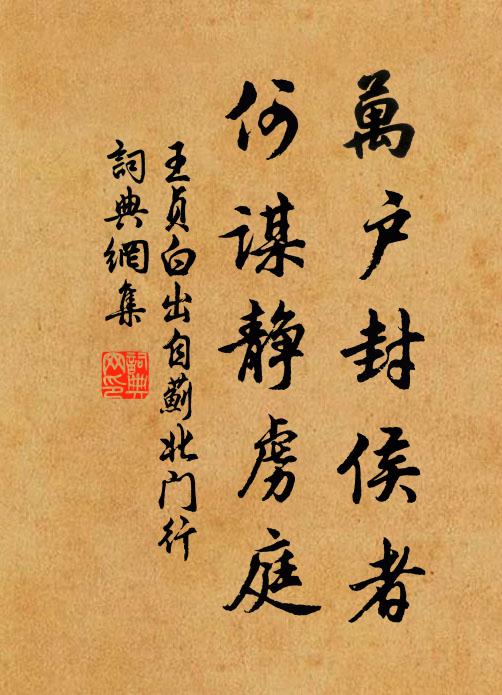 萬户封侯者
何謀静虜庭
王貞白出自薊北门行
詞典網集
詞典
网印